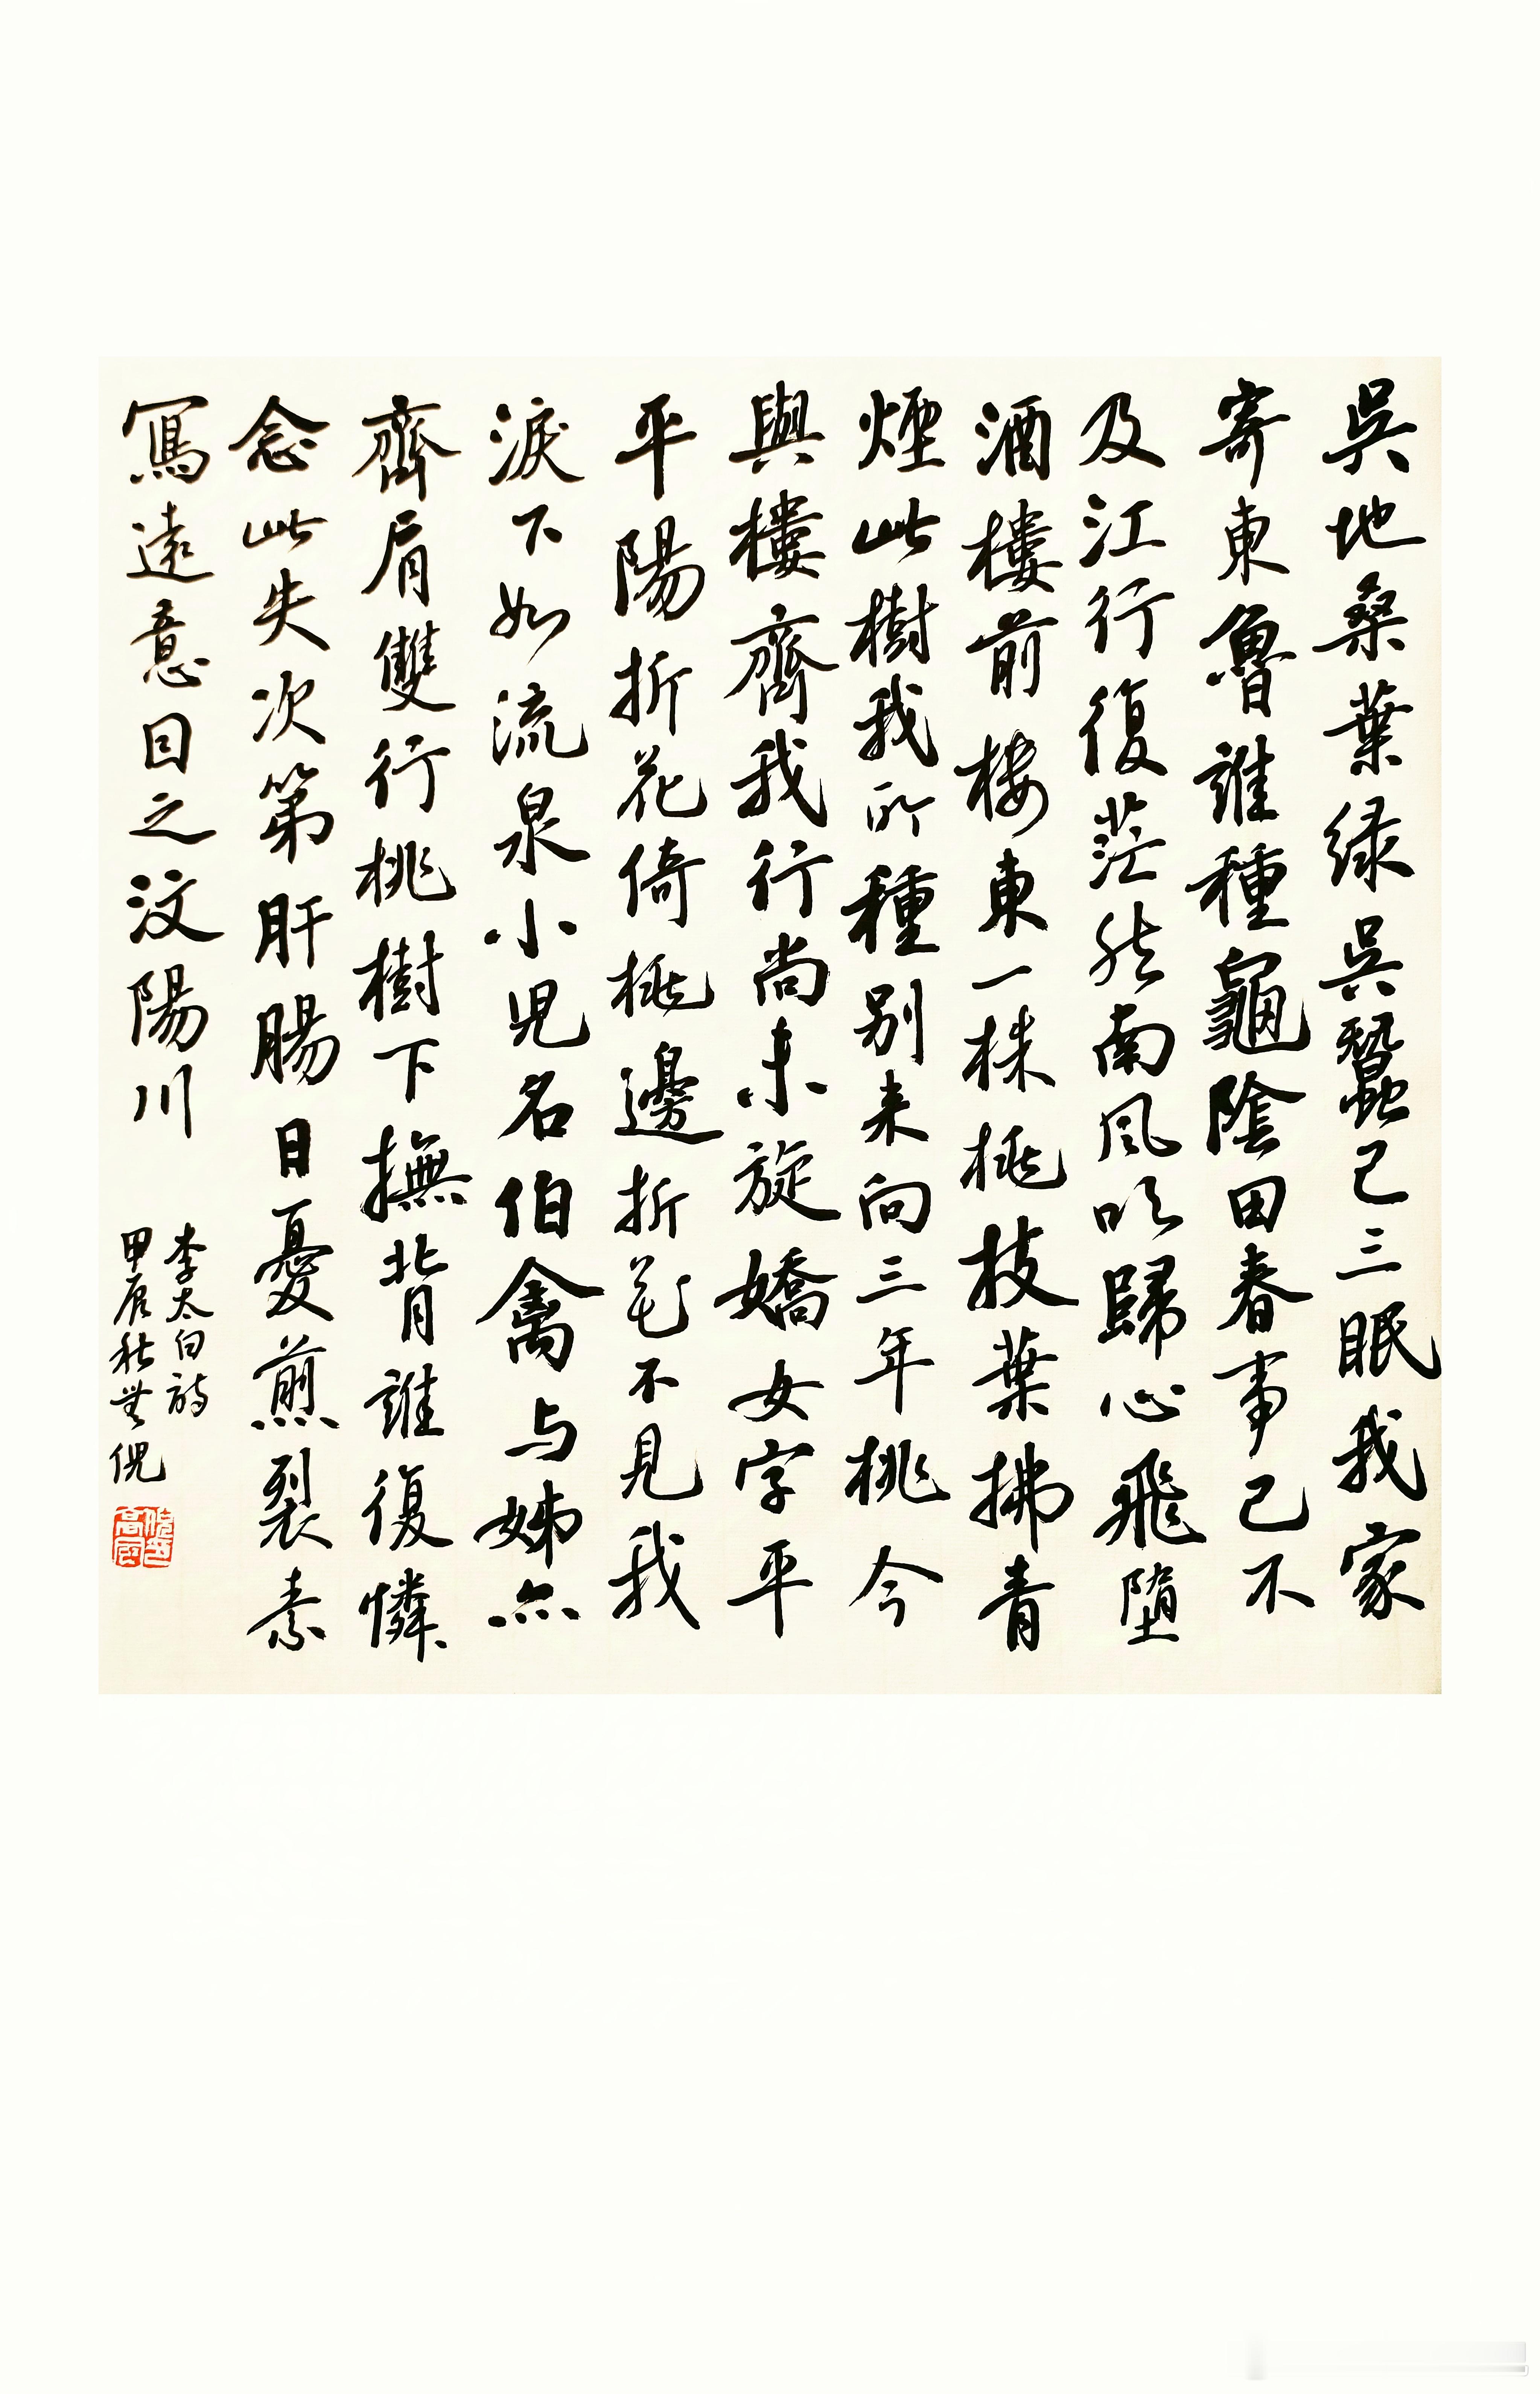 吳地桑葉緑吳蠶已三眠我家
寄東魯誰種龜陰田春事已不
及江行復茫然南風吹歸心飛墮
酒樓前樓東一株桃枝葉拂青
煙此樹我所種别来向三年桃今
與樓齊我行尚未旋嬌女字平
平陽折花倚桃邊折花不見我
淚下如流泉小兒名伯禽与姊亦
齊肩雙行桃樹下撫背誰復憐
念此失次第肝腸日憂煎裂素
寫遠意因之汶陽川
李太白詩
甲辰秋無倪